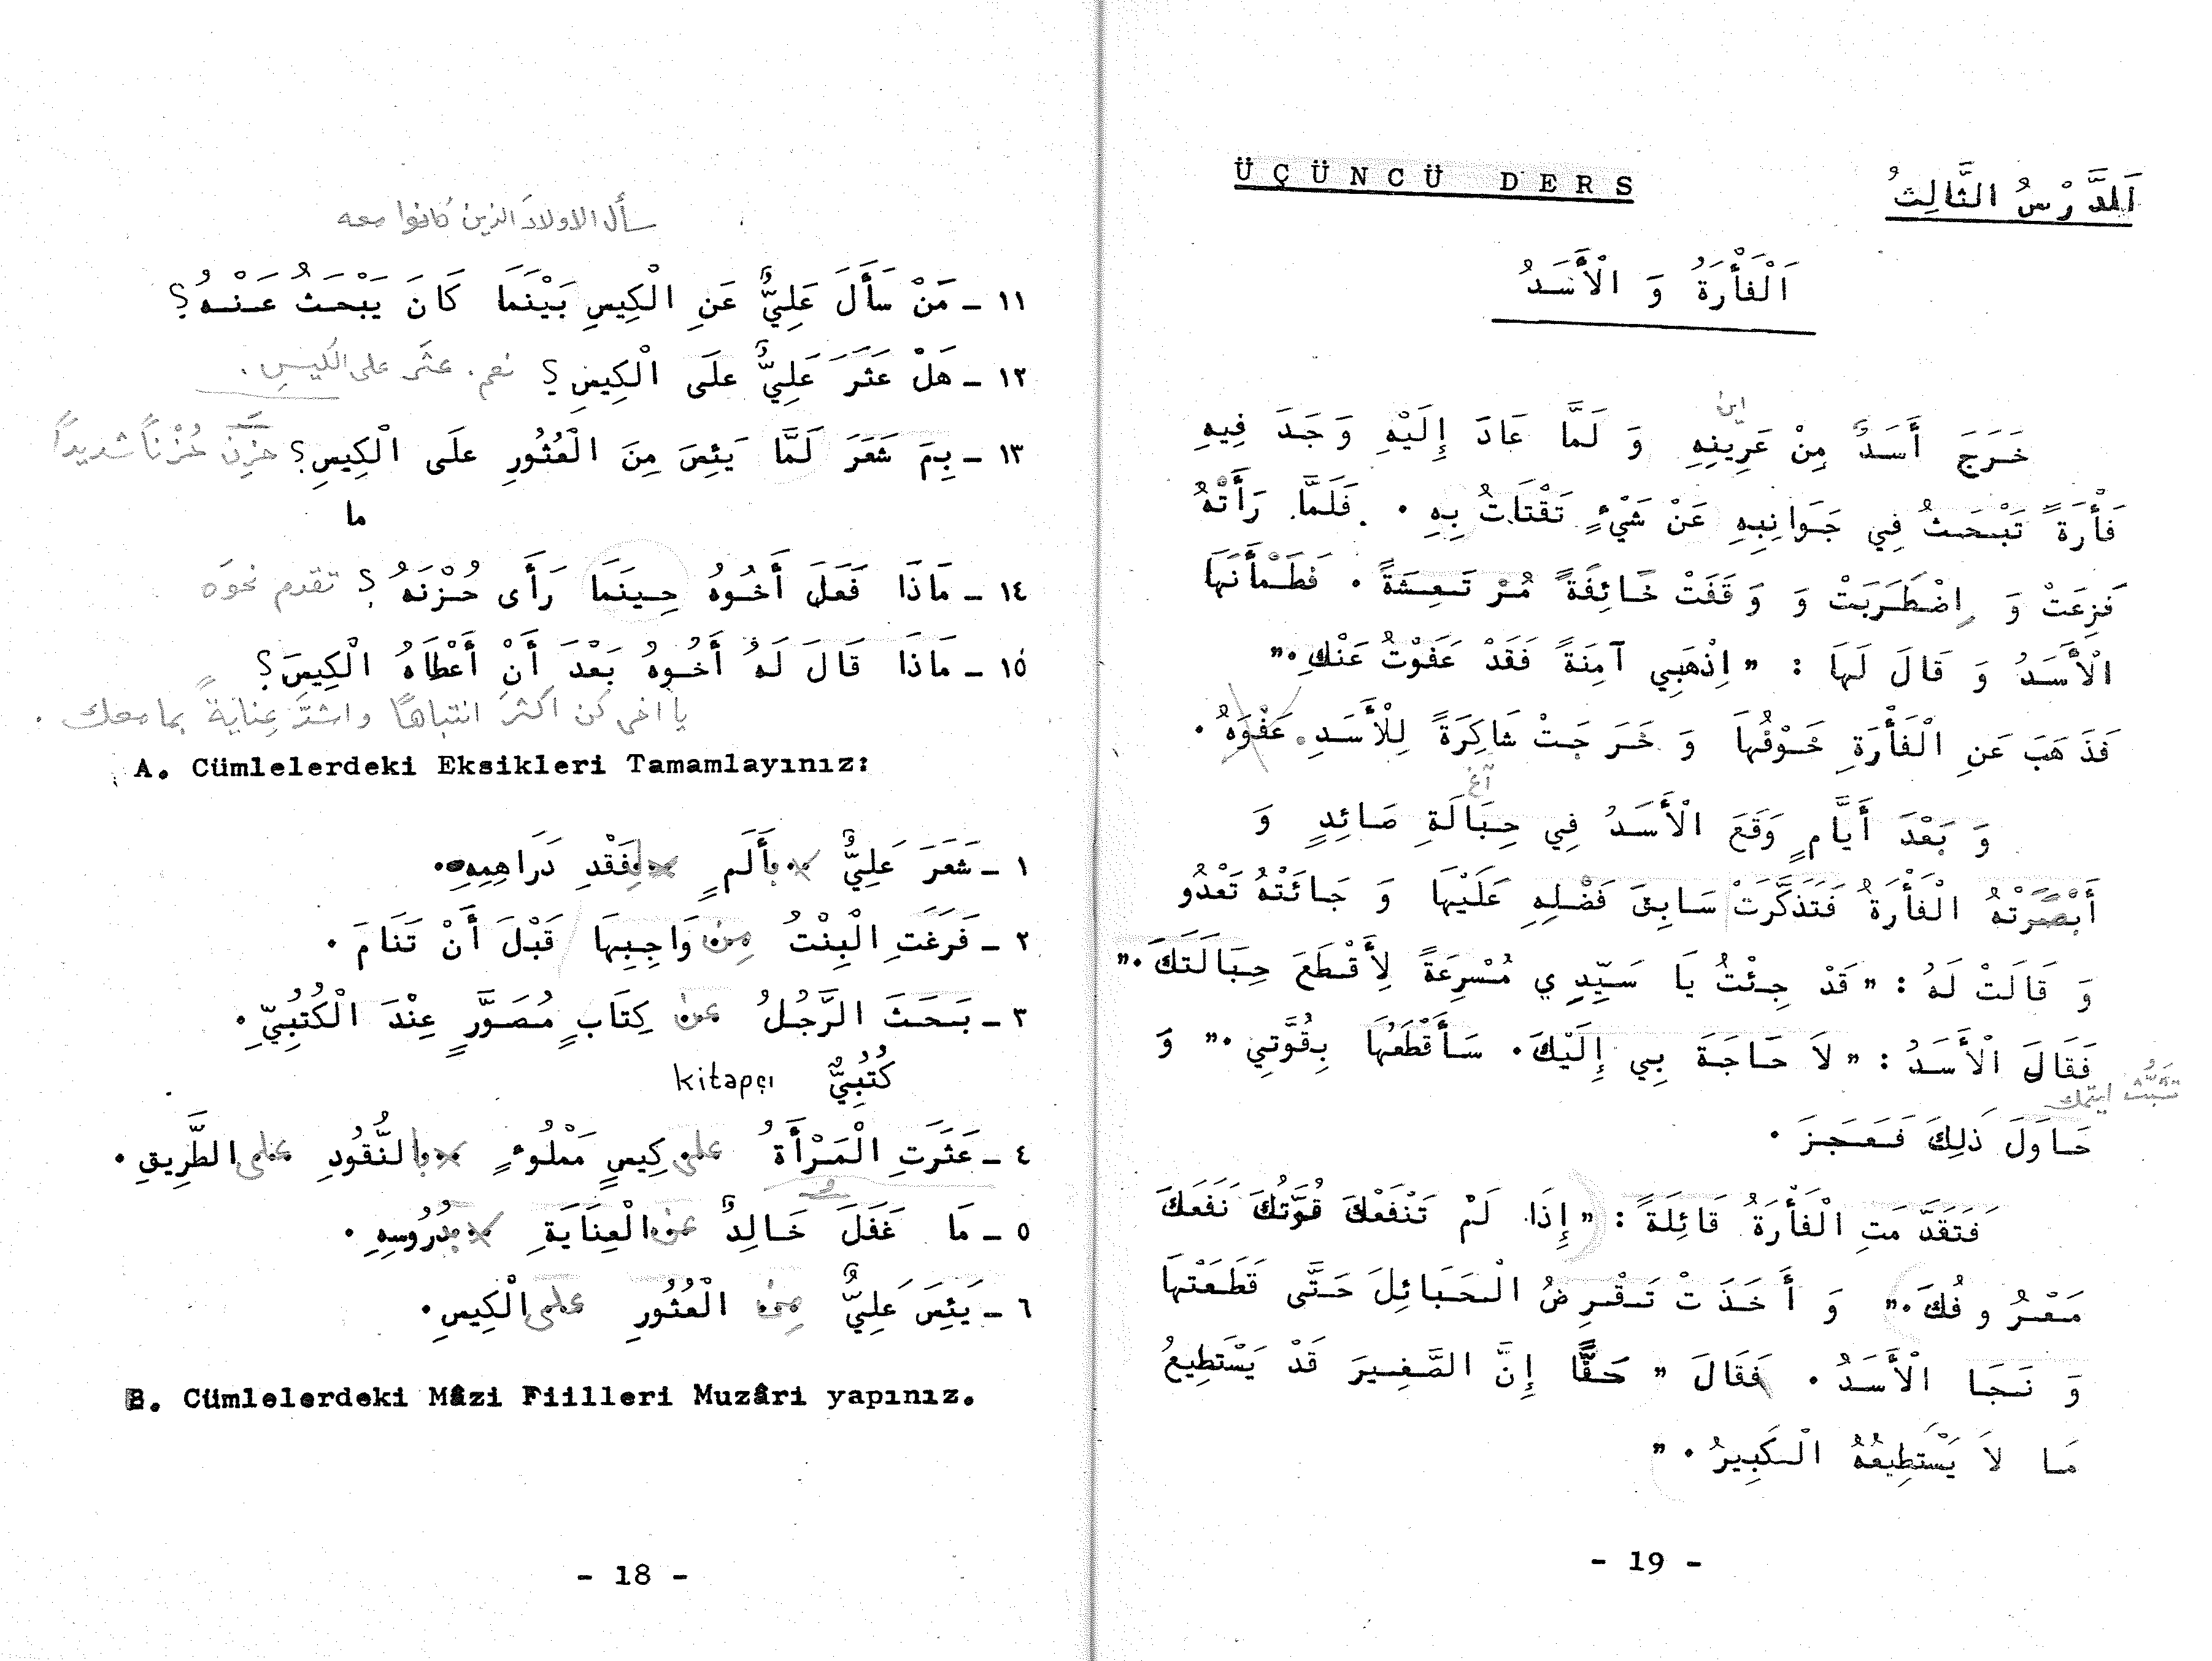 سأل الاولادَ الذين كانوا معه
١١ ـ مَنْ سَأَلَ عَلِيٌّ عَنِ الْكِيسِ بَيْنَمَا كَانَ يَبْحَثُ عَـنْـهُ؟
١٢ ـ هَلْ عَثَرَ عَلِيٌّ علَى الْكِيسِ؟ نعم. عثَر على الكيسِ.
١٣ ـ بِمَ شَعَرَ لَمَّا يَئِسَ مِنَ الْعُثُورِ علَى الْكِيسِ؟ حَزِنَ حُزْناً شديداً
ما
١٤ ـ مَاذَا فَعَلَ أَخُوهُ حِينَمَا رَأَى حُزْنَهُ؟ تقدم نحوَه
١٥ ـ مَاذَا قَالَ لَهُ أَخُوهُ بَعْدَ أَنْ أَعْطَاهُ الْكِيسَ؟
يا اخى كن اكثرَ انتباهًا واشدَّ عِنايةً بما معك.
A. Cümlelerdeki Eksikleri Tamamlayınız:
١ ـ شَعَرَ عَلِيٌّ بِأَلَمٍ لِفَقْدِ دَرَاهِمِهِ.
٢ ـ فَرَغَتِ الْبِنْتُ مِن وَاجِبِهَا قَبْلَ أَنْ تَنَامَ.
٣ ـ بَحَثَ الرَّجُلُ عن كِتَابٍ مُصَوَّرٍ عِنْدَ الْكُتُبِيِّ.
كُتُبِيٌّ kitapçı
٤ ـ عَثَرَتِ الْمَرْأَةُ على كِيسٍ مَمْلُوءٍ بالنُّقُودِ على الطَّرِيقِ.
٥ ـ مَا غَفَلَ خَالِدٌ عن الْعِنَايَةِ بِدُرُوسِهِ.
٦ ـ يَئِسَ عَلِيٌّ مِن الْعُثُورِ على الْكِيسِ.
B. Cümlelerdeki Mâzi Fiilleri Muzâri yapınız.
- 18 -
ÜÇÜNCÜ DERS
اَلدَّرْسُ الثَّالِثُ
اَلْفَأْرَةُ وَ الْأَسَدُ
خَرَجَ أَسَدٌ مِنْ عَرِينِهِ وَ لَمَّا عَادَ إِلَيْهِ وَجَدَ فِيهِ
فَأْرَةً تَبْحَثُ فِي جَوَانِبِهِ عَنْ شَيْءٍ تَقْتَاتُ بِهِ. فَلَمَّا رَأَتْهُ
فَزِعَتْ وَ اِضْطَرَبَتْ وَ وَقَفَتْ خَائِفَةً مُرْتَعِشَةً. فَطَمْأَنَهَا
الْأَسَدُ وَ قَالَ لَهَا : " اِذْهَبِي آمِنَةً فَقَدْ عَفَوْتُ عَنْكِ."
فَذَهَبَ عَنِ الْفَأْرَةِ خَوْفُهَا وَ خَرَجَتْ شَاكِرَةً لِلْأَسَدِ عَفْوَهُ.
وَ بَعْدَ أَيَّامٍ وَقَعَ الْأَسَدُ فِي حِبَالَةِ صَائِدٍ وَ
أَبْصَرَتْهُ الْفَأْرَةُ فَتَذَكَّرَتْ سَابِقَ فَضْلِهِ عَلَيْهَا وَ جَائَتْهُ تَعْدُو
وَ قَالَتْ لَهُ : " قَدْ جِئْتُ يَا سَيِّدِي مُسْرِعَةً لِأَقْطَعَ حِبَالَتَكَ."
فَقَالَ الْأَسَدُ : " لاَ حَاجَةَ بِي إِلَيْكَ. سَأَقْطَعُهَا بِقُوَّتِي." وَ
حَاوَلَ ذلِكَ فَعَجَزَ.
فَتَقَدَّمَتِ الْفَأْرَةُ قَائِلَةً : " إِذَا لَمْ تَنْفَعْكَ قُوَّتُكَ نَفَعَكَ
مَعْرُوفُكَ." وَ أَخَذَتْ تَقْرِضُ الْحَبَائِلَ حَتَّى قَطَعَتْهَا
وَ نَجَا الْأَسَدُ. فَقَالَ " حَقًّا إِنَّ الصَّغِيرَ قَدْ يَسْتَطِيعُ
مَا لاَ يَسْتَطِيعُهُ الْكَبِيرُ. "
- 19 -